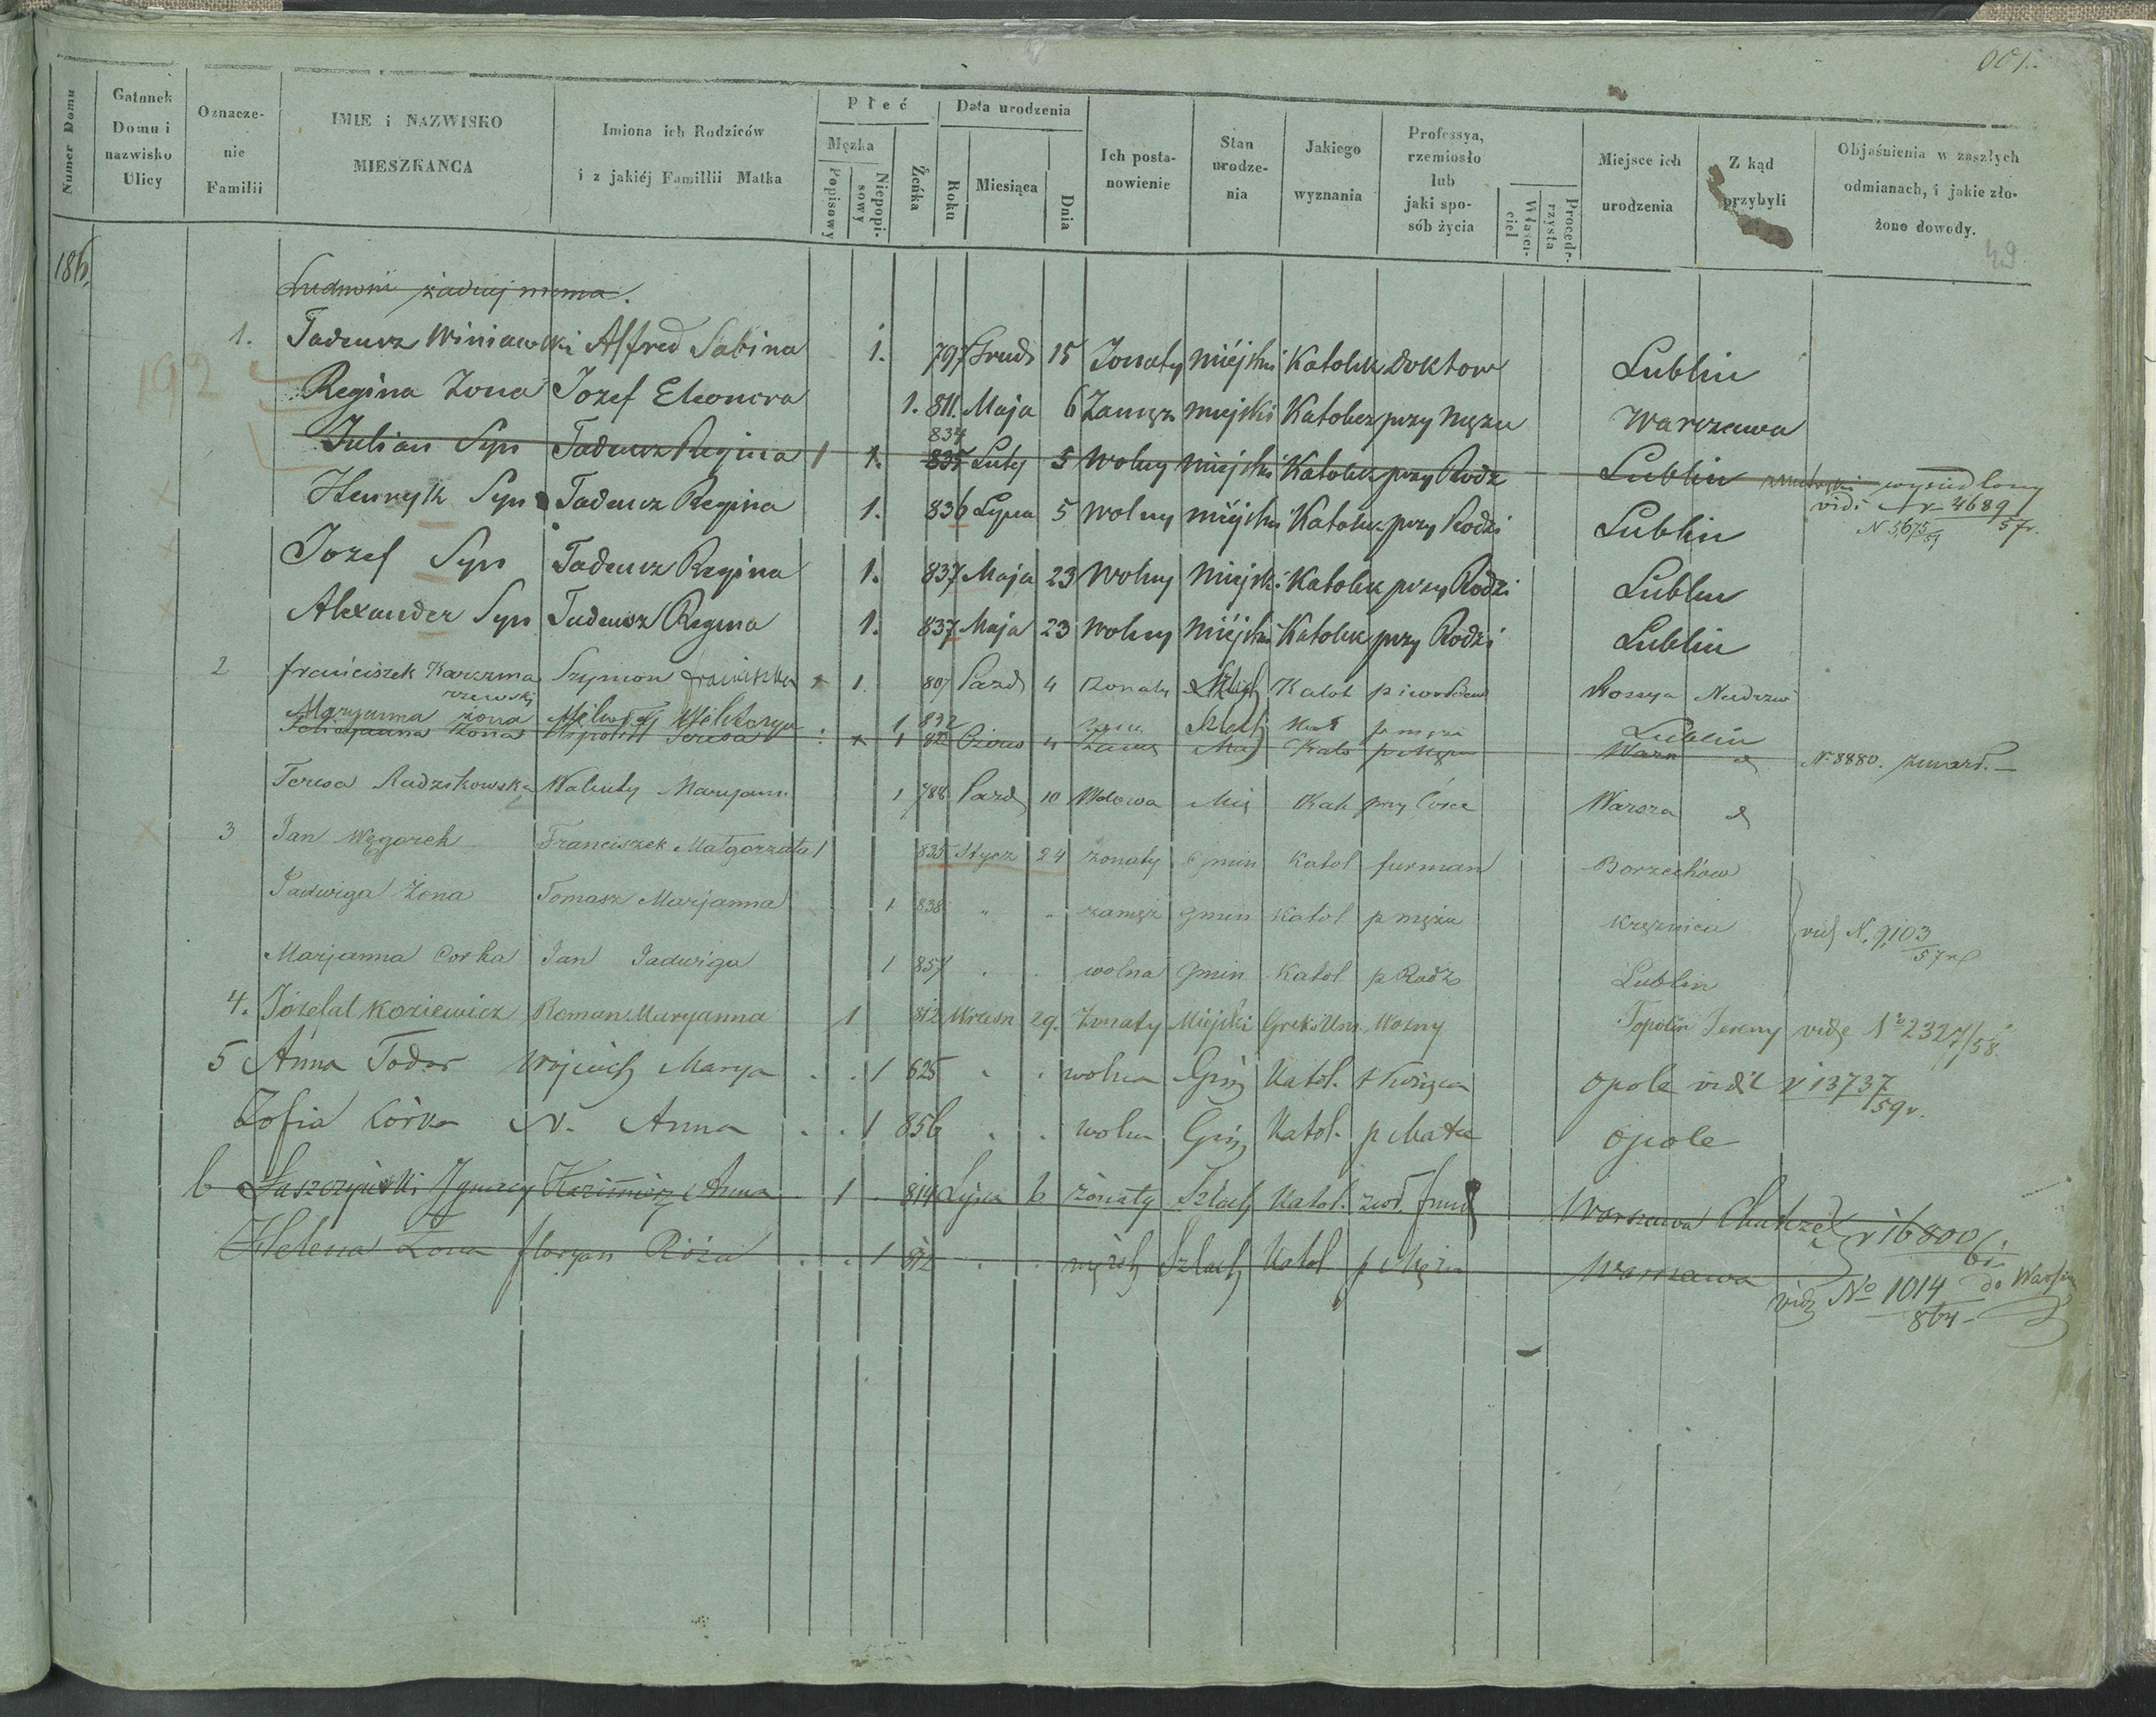 601.
Numer Domu
Gatunek Domu i nazwisko Ulicy
Oznaczenie Familii
IMIE i NAZWISKO MIESZKANCA
Imiona ich Rodziców i z jakiéj Familii Matka
Płeć
Męzka
Popisowy
Niepopisowy
Żeńka
Data urodzenia
Roku
Miesiąca
Dnia
Ich postanowienie
Stan urodzenia
Jakiego wyznania
Professya, rzemiosło lub jaki sposób życia
Właściciel
Procederzysta
Miejsce ich urodzenia
Z kąd przybyli
Objaśnienia w zaszłych odmianach, i jakie złożono dowody.
49
186.
Ludnosci żadnej niema.
192
1. Tadeusz Winiawski Alfred Sabina 1. 797 Grud 15 Zonaty miéjski Katolik Doktor Lublin
Regina Zona Jozef Eleonora 1. 811. Maja 6 Zamęz miejski Katolicz przy Mężu Warszawa
Julian Syn Tadeusz Regina 1 1. 834 835 Luty 5 Wolny miejski Katolik przy Rodz Lublin wysiedlony
vidi N 4689 57r.
N 5675/59
Henryk Syn Tadeusz Regina 1. 836 Lipca 5 Wolny miéjski Katolik przy Rodzi Lublin
Jozef Syn Tadeusz Regina 1. 837 Maja 23 Wolny Miejski Katolik przy Rodzi Lublin
Alexander Syn Tadeusz Regina 1. 837 Maja 23 Wolny Miéjski Katolik przy Rodzi Lublin
2 Franciszek Karszmarzewski Szymon Franciszka 1 807 Pazd 4 Zonaty Szlach Katol Rossya
Maryanna żona Wiktorya 1 832 Szlach Kat p męzu Lublin
Maryanna Zona Hipolit Teresa 1 Czerw 4 Zamę Kato p Męzu Warsz
N. 8880. zmarł.
Teresa Radzikowska Walenty Maryann 1 788 Pazd 10 Wdowa Miej Kat przy Córce Warsza
3 Jan Węgorek Franciszek Małgorzata 1 835 Stycz 24 żonaty Gmin Katol furman Borzechów
Jadwiga Żona Tomasz Marjanna 1 838 " " zamęż Gmin Katol p mężu Krężnica
vid N. 9103 57r
Marjanna Corka Jan Jadwiga 1 857 " " wolna Gmin Katol p Rodz Lublin
4. Józefat Koziewicz Roman Maryanna 1 812 Wrzesn 29. Żonaty Miejski Greko Un. Wozny Topolin vide No 2327/58.
5 Anna Todor Wojciech Marya . . 1 825 . . wolna Gmi Katol. Opole vidi N 13737 59r.
Zofia Córka N. Anna . . 1 856 . . wolna Gmi Katol. p Matce Opole
6 Łaszczyński Ignacy Kazimierz Anna 1 . 814 Lipca 6 żonaty Szlach Katol. Warszawa
N 16800/61.
Helena Żona Floryan Róża . . 1 812 . . Szlach Katol p Mężu Warszawa
vid No 1014 864 do Warsza